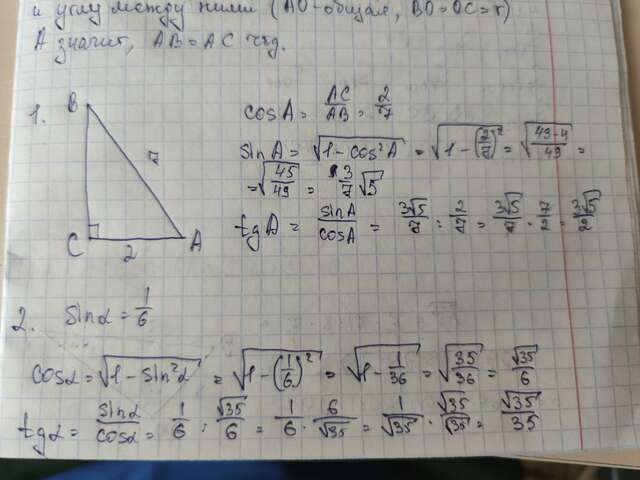 и углу между ними (AO-общая, BO=OC=r)
А значит, AB=AC чтд.
1.
B
7
C
2
A
cosA = AC/AB = 2/7
sinA = √(1-cos²A) = √(1-(2/7)²) = √((49-4)/49) =
= √(45/49) = 3/7 √5
tgA = sinA/cosA = 3√5/7 : 2/7 = 3√5/7 · 7/2 = 3√5/2
2. sinα = 1/6
cosα = √(1-sin²α) = √(1-(1/6)²) = √(1-1/36) = √(35/36) = √35/6
tgα = sinα/cosα = 1/6 : √35/6 = 1/6 · 6/√35 = 1/√35 · √35/√35 = √35/35